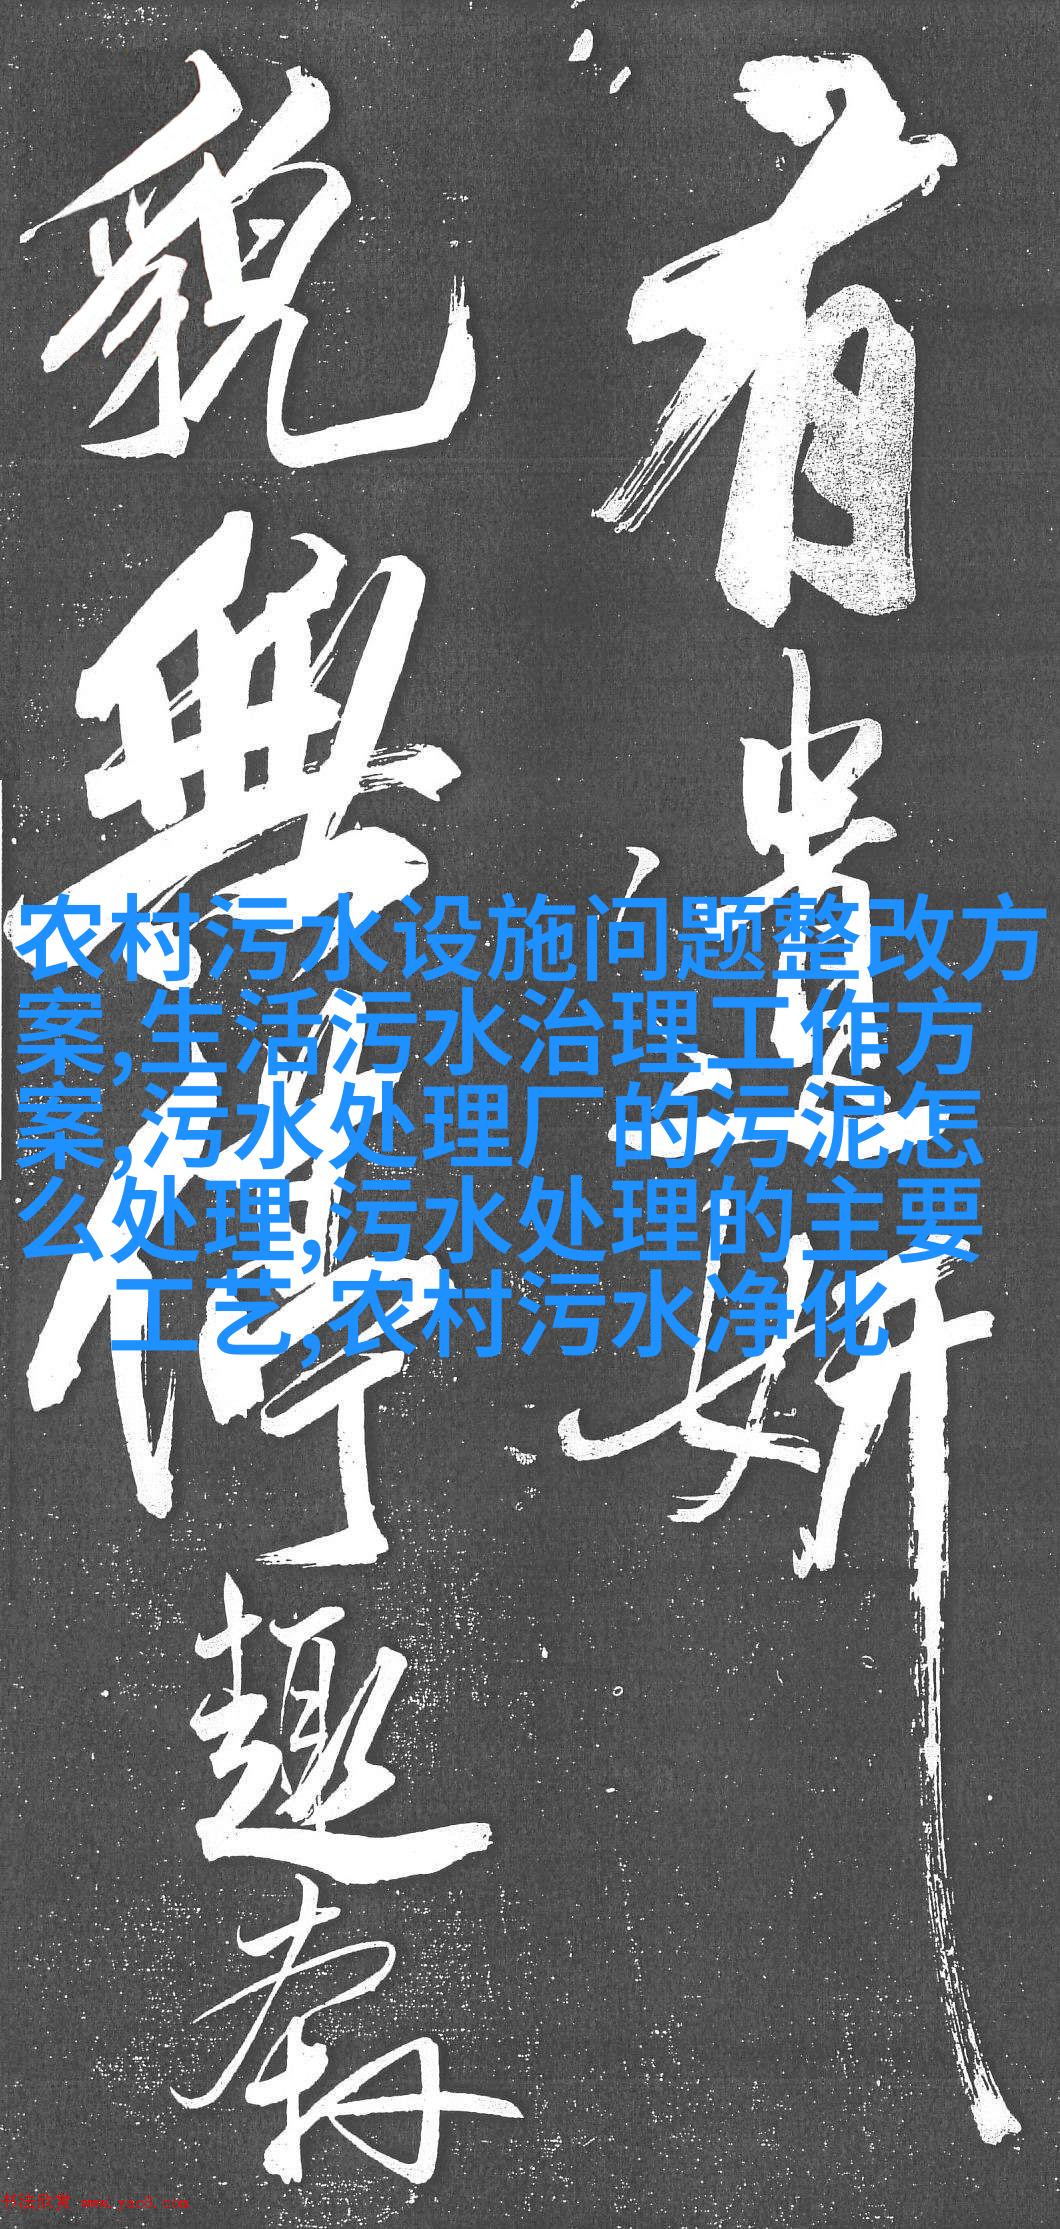 有遺妍
貌無停趣
農村污水设施问题整改方
案,生活污水治理工作方
案,污水处理厂的污泥怎
么处理,污水处理的主要
工艺,农村污水净化
书法欣赏 www.yac8.com